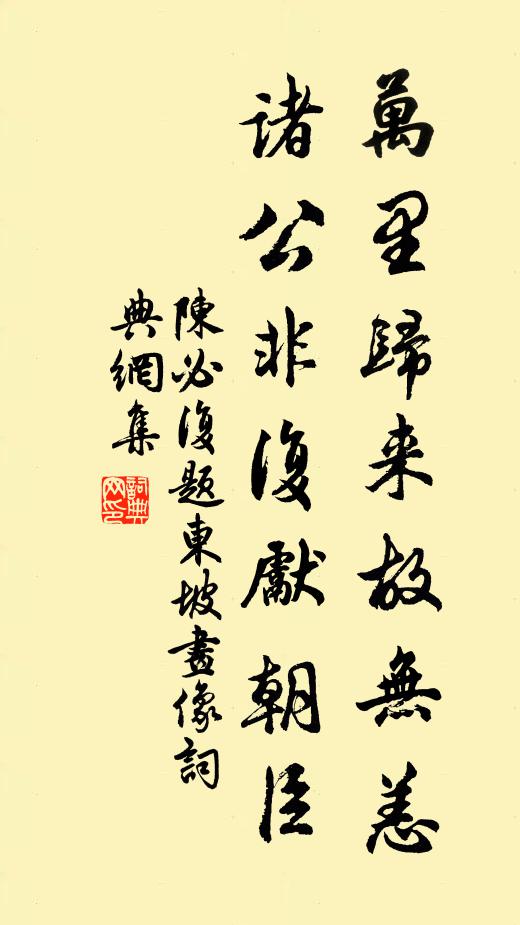 萬里歸来故無恙
諸公非復獻朝臣
陳必復題東坡畫像詞
典網集
詞典
网印